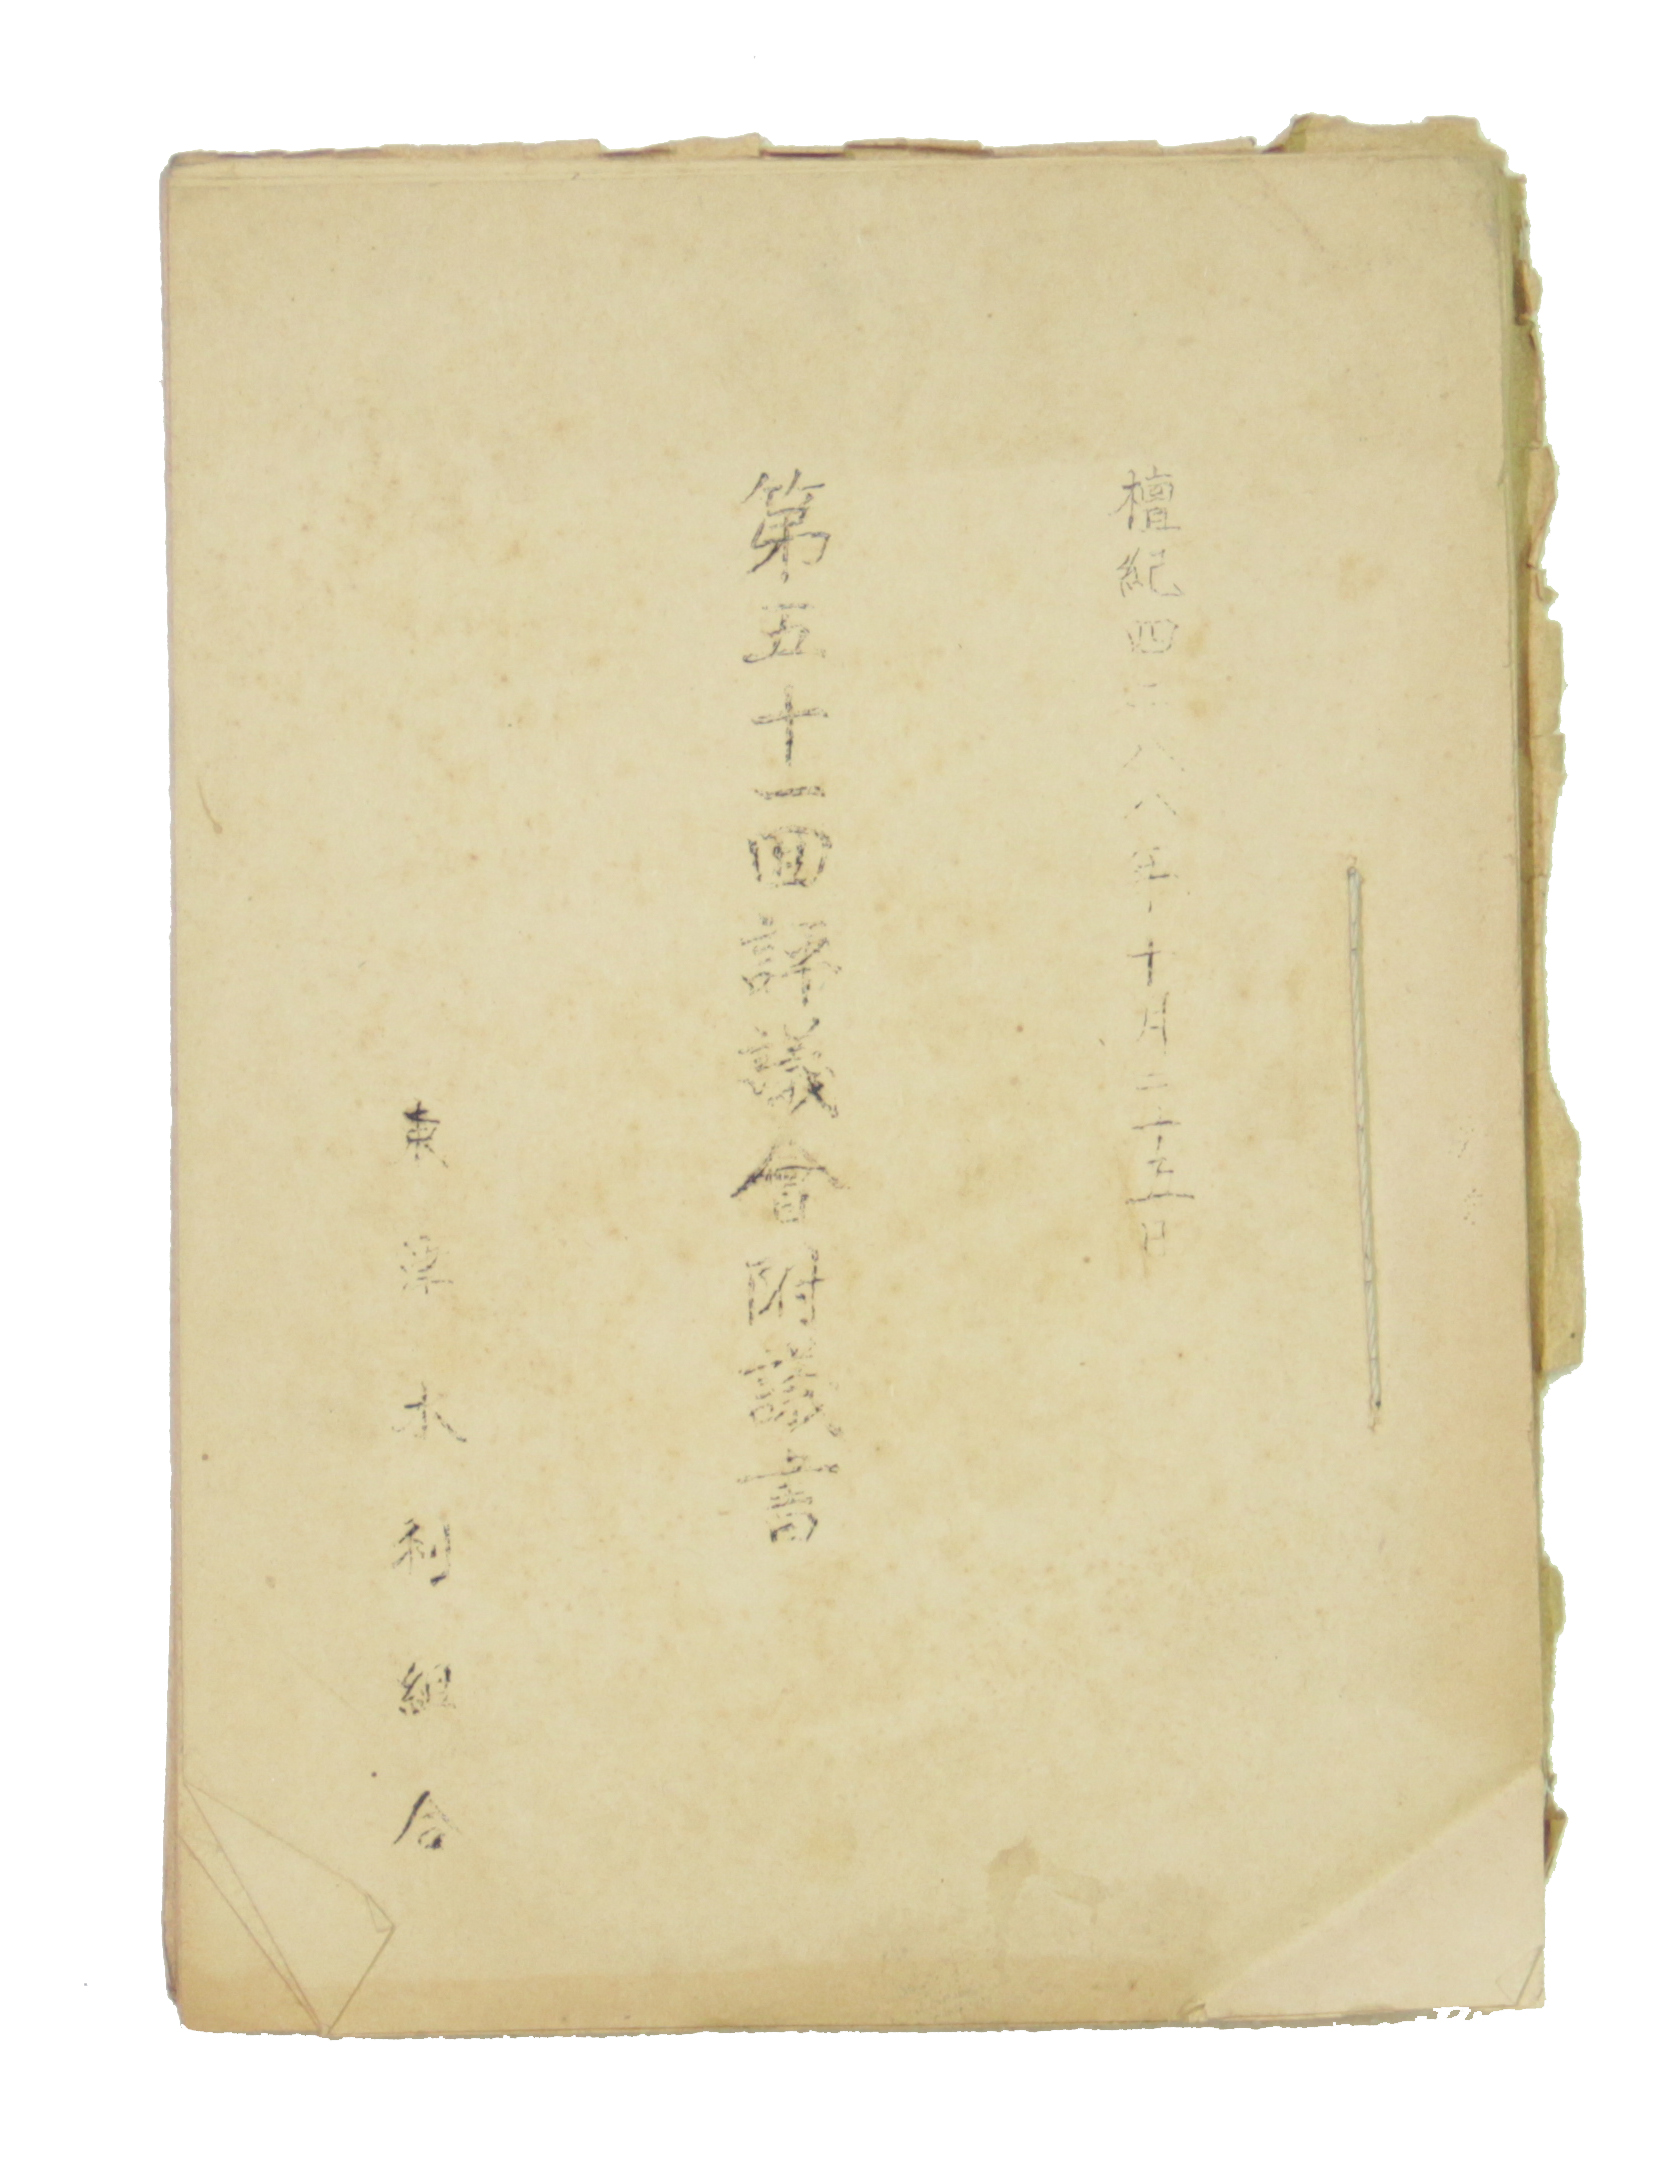 檀紀四二八八年十月二十五日
第五十一回評議會附議書
東 水利組合